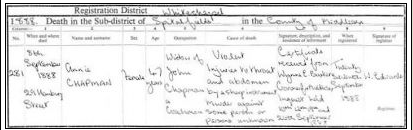 Registration District Whitechapel
1888. Death in the Sub-district of Spitalfields in the County of Middlesex
When and where died Name and surname Sex Age Occupation Cause of death Signature, description, and residence of informant When registered Signature of registrar
281
8th September 1888
29 Hanbury Street
Annie CHAPMAN
Female
47 years
Widow of John Chapman a Coachman
Violent injuries to throat and abdomen by a sharp instrument
Murder against some person or persons unknown
Certificate received from Wynne E. Baxter Coroner for Middlesex
Inquest held
September 1888
September 1888
W. Edwards
Registrar